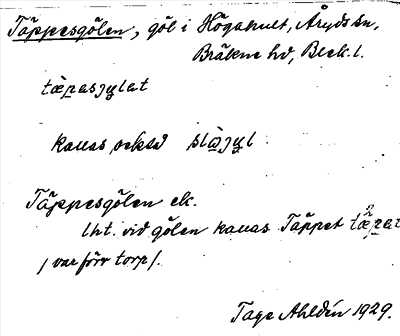 Täppesgölen, göl i Högahult, Åryds sn,
Bräkne hd, Blek. l.
tæ̀pasjylat
kallas också slàjyl
Täppesgölen ek.
lht. vid gölen kallas Täppet
/ var förr torp /.
Tage Ahldén 1929.